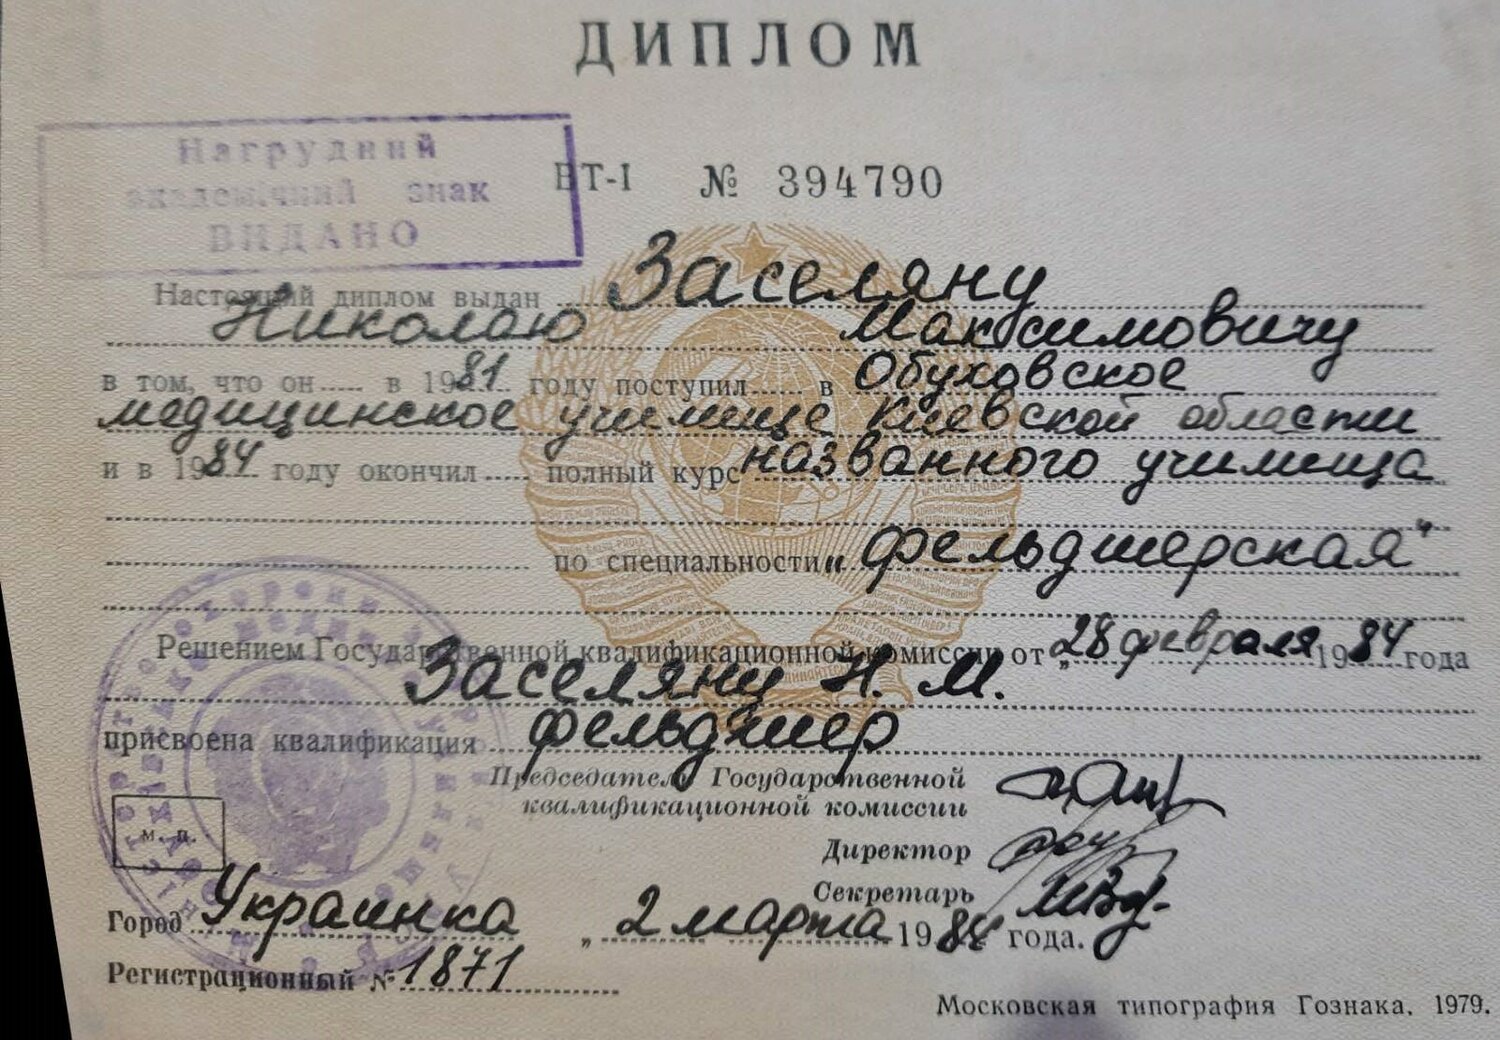 ДИПЛОМ
Нагрудний
академічний знак
ВИДАНО
ВТ-I № 394790
Настоящий диплом выдан Заселяну
Николаю Максимовичу
в том, что он в 1981 году поступил в Обуховское
медицинское училище Киевской области
и в 1984 году окончил полный курс названного училища
по специальности „фельдшерская“
Решением Государственной квалификационной комиссии от „28 февраля 1984 года
Заселяну Н. М.
присвоена квалификация фельдшер
Председатель Государственной
квалификационной комиссии
Директор
Секретарь
м. п.
Город Украинка „ 2 марта 1984 года.
Регистрационный № 1871
Московская типография Гознака. 1979.